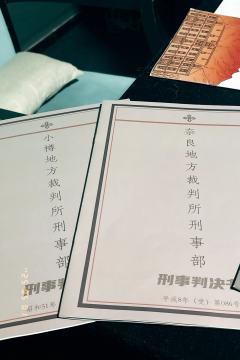 小樽地方裁判所刑事部
刑事判
昭和51年
奈良地方裁判所刑事部
刑事判決
平成8年（受）第086号